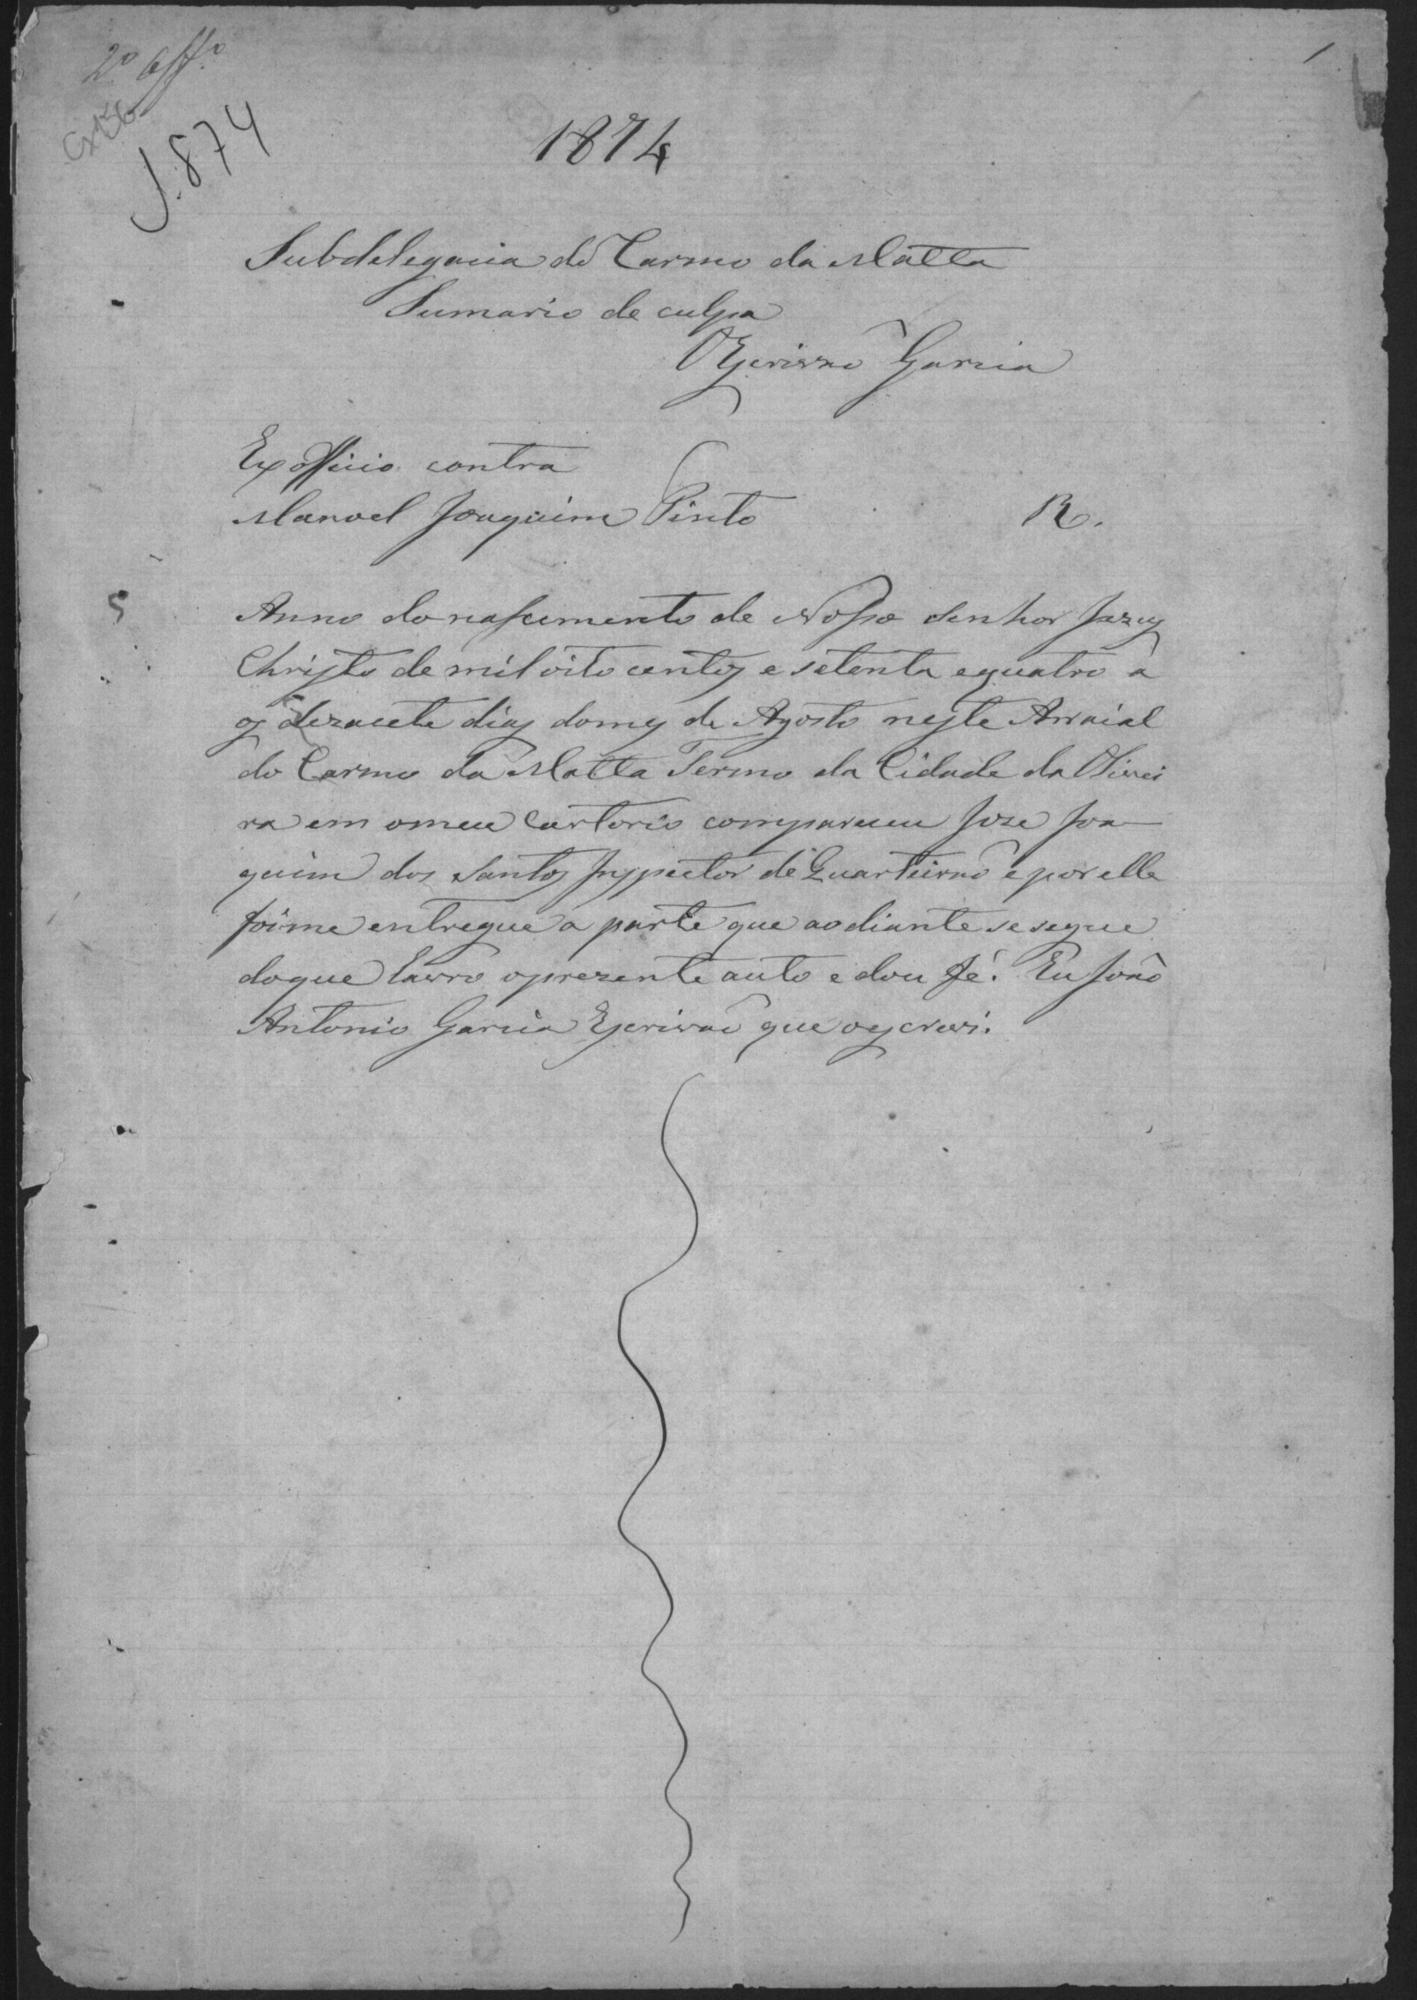 2º Offº
Cx 36
1874
1
1874
Subdelegacia do Carmo da Matta
Sumario de culpa
O Escrivaõ Garcia
Ex officio contra
Manoel Joaquim Pinto R.
Anno do nascimento de Nosso Senhor Jezus
Christo de mil oito centos e setenta e quatro a
os dezacete dias do mes de Agosto neste Arraial
do Carmo da Matta Termo da Cidade da Olivei
ra em o meu Cartorio compareceu Joze Joa
quim dos Santos Inspector de Quarteiraõ e por elle
foi me entregue a parte que ao diante se segue
do que lavro o prezente auto e dou fé. Eu Joaõ
Antonio Garcia Escrivaõ que o escrevi.